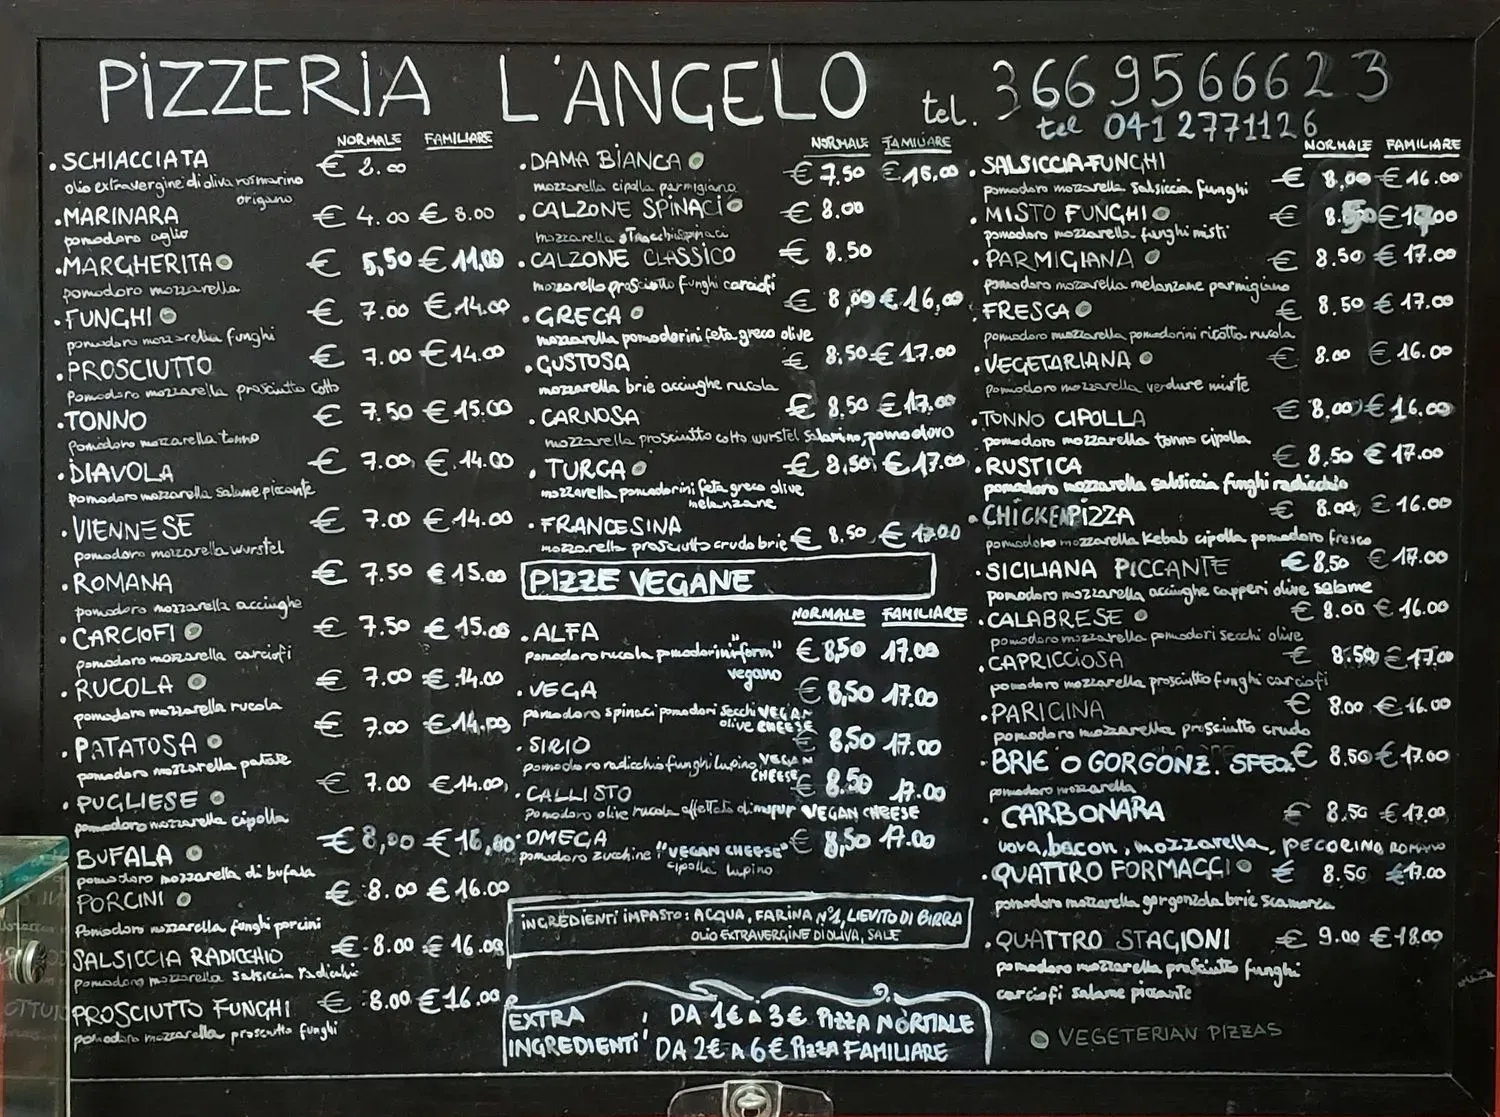 PIZZERIA L'ANGELO tel. 3669566623
tel 0412771126
NORMALE FAMILIARE
• SCHIACCIATA € 2.00
olio extravergine di oliva rosmarino
origano
• MARINARA € 4.00 € 8.00
pomodoro aglio
• MARGHERITA € 5,50 € 11,00
pomodoro mozzarella
• FUNGHI € 7.00 € 14.00
pomodoro mozzarella funghi
• PROSCIUTTO € 7.00 € 14.00
pomodoro mozzarella prosciutto cotto
• TONNO € 7.50 € 15.00
pomodoro mozzarella tonno
• DIAVOLA € 7.00 € 14.00
pomodoro mozzarella salame piccante
• VIENNESE € 7.00 € 14.00
pomodoro mozzarella wurstel
• ROMANA € 7.50 € 15.00
pomodoro mozzarella acciughe
• CARCIOFI € 7.50 € 15.00
pomodoro mozzarella carciofi
• RUCOLA € 7.00 € 14.00
pomodoro mozzarella rucola
• PATATOSA € 7.00 € 14,00
pomodoro mozzarella patate
• PUGLIESE € 7.00 € 14.00
pomodoro mozzarella cipolla
BUFALA € 8,00 € 16,00
pomodoro mozzarella di bufala
PORCINI € 8.00 € 16.00
Pomodoro mozzarella funghi porcini
SALSICCIA RADICCHIO € 8.00 € 16.00
pomodoro mozzarella salsiccia radicchio
PROSCIUTTO FUNGHI € 8.00 € 16.00
pomodoro mozzarella prosciutto funghi
NORMALE FAMILIARE
• DAMA BIANCA € 7.50 € 15,00
mozzarella cipolla parmigiano
• CALZONE SPINACI € 8.00
mozzarella stracchi spinaci
• CALZONE CLASSICO € 8.50
mozzarella prosciutto funghi carciofi
• GRECA € 8,00 € 16,00
mozzarella pomodorini feta greco olive
• GUSTOSA € 8.50 € 17.00
mozzarella brie acciughe rucola
• CARNOSA € 8,50 € 17,00
mozzarella prosciutto cotto wurstel salamino, pomodoro
• TURCA € 8,50 € 17.00
mozzarella pomodorini feta greco olive
melanzane
• FRANCESINA € 8.50 € 17.00
mozzarella prosciutto crudo brie
PIZZE VEGANE
NORMALE FAMILIARE
• ALFA € 8,50 17.00
pomodoro rucola pomodorini "form"
vegano
• VEGA € 8,50 17.00
pomodoro spinaci pomodori secchi VEGAN
olive CHEESE
• SIRIO € 8,50 17.00
pomodoro radicchio funghi lupino VEGAN
CHEESE
• CALLISTO € 8.50 17.00
pomodoro olive rucola affettato di mopur VEGAN CHEESE
• OMEGA € 8,50 17.00
pomodoro zucchine "VEGAN CHEESE"
cipolla lupino
INGREDIENTI IMPASTO: ACQUA, FARINA N°1, LIEVITO DI BIRRA
OLIO EXTRAVERGINE DI OLIVA, SALE
EXTRA INGREDIENTI
DA 1€ A 3€ PIZZA NORMALE
DA 2€ A 6€ PIZZA FAMILIARE
NORMALE FAMILIARE
• SALSICCIA-FUNGHI € 8,00 € 16.00
pomodoro mozzarella salsiccia funghi
• MISTO FUNGHI € 8.50 € 17.00
pomodoro mozzarella funghi misti
• PARMIGIANA € 8.50 € 17.00
pomodoro mozzarella melanzane parmigiano
• FRESCA € 8.50 € 17.00
pomodoro mozzarella pomodorini ricotta rucola
• VEGETARIANA € 8.00 € 16.00
pomodoro mozzarella verdure miste
• TONNO CIPOLLA € 8,00 € 16.00
pomodoro mozzarella tonno cipolla
• RUSTICA € 8,50 € 17.00
pomodoro mozzarella salsiccia funghi radicchio
• CHICKENPIZZA € 8.00 € 16.00
pomodoro mozzarella Kebab cipolla pomodoro fresco
• SICILIANA PICCANTE € 8,50 € 17.00
pomodoro mozzarella acciughe capperi olive salame
• CALABRESE € 8.00 € 16.00
pomodoro mozzarella pomodori secchi olive
• CAPRICCIOSA € 8.50 € 17,00
pomodoro mozzarella prosciutto funghi carciofi
• PARIGINA € 8.00 € 16.00
pomodoro mozzarella prosciutto crudo
• BRIE O GORGONZ. SPEC € 8.50 € 17.00
pomodoro mozzarella
• CARBONARA € 8.50 € 17.00
uova, bacon, mozzarella, PECORINO ROMANO
• QUATTRO FORMAGGI € 8.50 €17.00
pomodoro mozzarella gorgonzola brie scamorza
• QUATTRO STAGIONI € 9.00 € 18.00
pomodoro mozzarella prosciutto funghi
carciofi salame piccante
VEGETERIAN PIZZAS